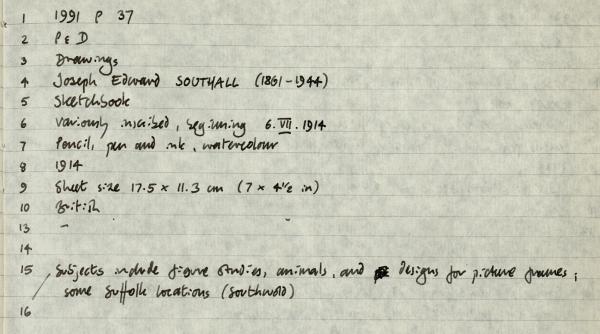 1 1991 P 37
2 P & D
3 Drawings
4 Joseph Edward SOUTHALL (1861-1944)
5 Sketchbook
6 Variously inscribed, beginning 6.VII.1914
7 Pencil, pen and ink, watercolour
8 1914
9 Sheet size 17.5 x 11.3 cm (7 x 4½ in)
10 British
13 -
14
15 Subjects include figure studies, animals, and designs for picture frames;
some Suffolk locations (Southwold)
16